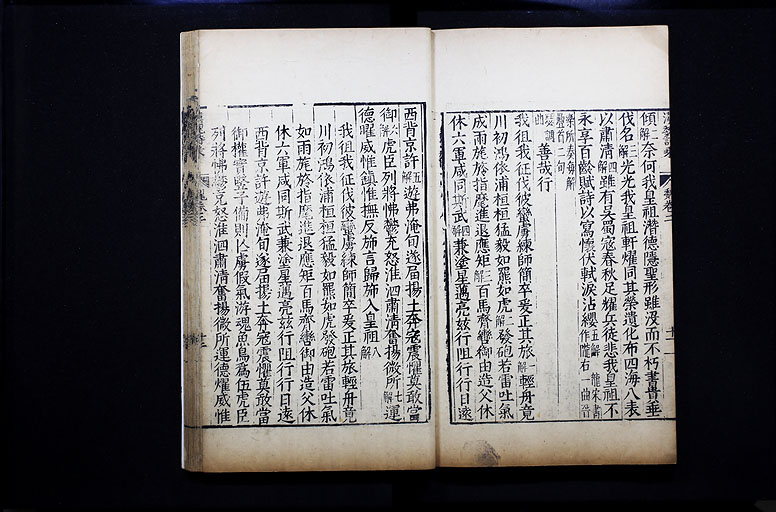 傾二解奈何我皇祖潛德隱聖形雖沒而不朽書貴垂
伐名三解光光我皇祖軒燿同其榮遺化布四海八表
以肅清四解雖有吳蜀寇春秋足耀兵徒悲我皇祖不
永享百齡賦詩以寫懷伏軾淚沾纓五解
善哉行
我徂我征伐彼蠻虜練師簡卒爰正其旅一解輕舟竟
川初鴻依浦桓桓猛毅如羆如虎二解發砲若雷吐氣
成雨旄旍指麾進退應矩三解百馬齊轡御由造父休
休六軍咸同斯武四解兼塗星邁亮茲行阻行行日遠
西背京許五解遊弗淹旬遂屆揚土奔寇震懼莫敢當
御六解虎臣列將怫鬱充怒淮泗肅清奮揚微所七解運
德曜威惟鎮惟撫反旆言歸旆入皇祖八解
我徂我征伐彼蠻虜練師簡卒爰正其旅輕舟竟
川初鴻依浦桓桓猛毅如羆如虎發砲若雷吐氣
如雨旄旍指麾進退應矩百馬齊轡御由造父休
休六軍咸同斯武兼塗星邁亮茲行阻行行日遠
西背京許遊弗淹旬遂屆揚土奔寇震懼莫敢當
御權實豎子備則亾虜假氣游魂魚鳥為伍虎臣
列將怫鬱充怒淮泗肅清奮揚微所運德燿威惟